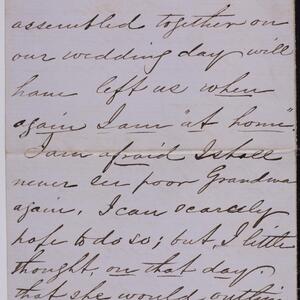 assembled together on
our wedding day will
have left us when
again I am "at home".
I am afraid I shall
never see poor Grandma
again, I can scarcely
hope to do so; but, I little
thought, on that day.
that she would outlive